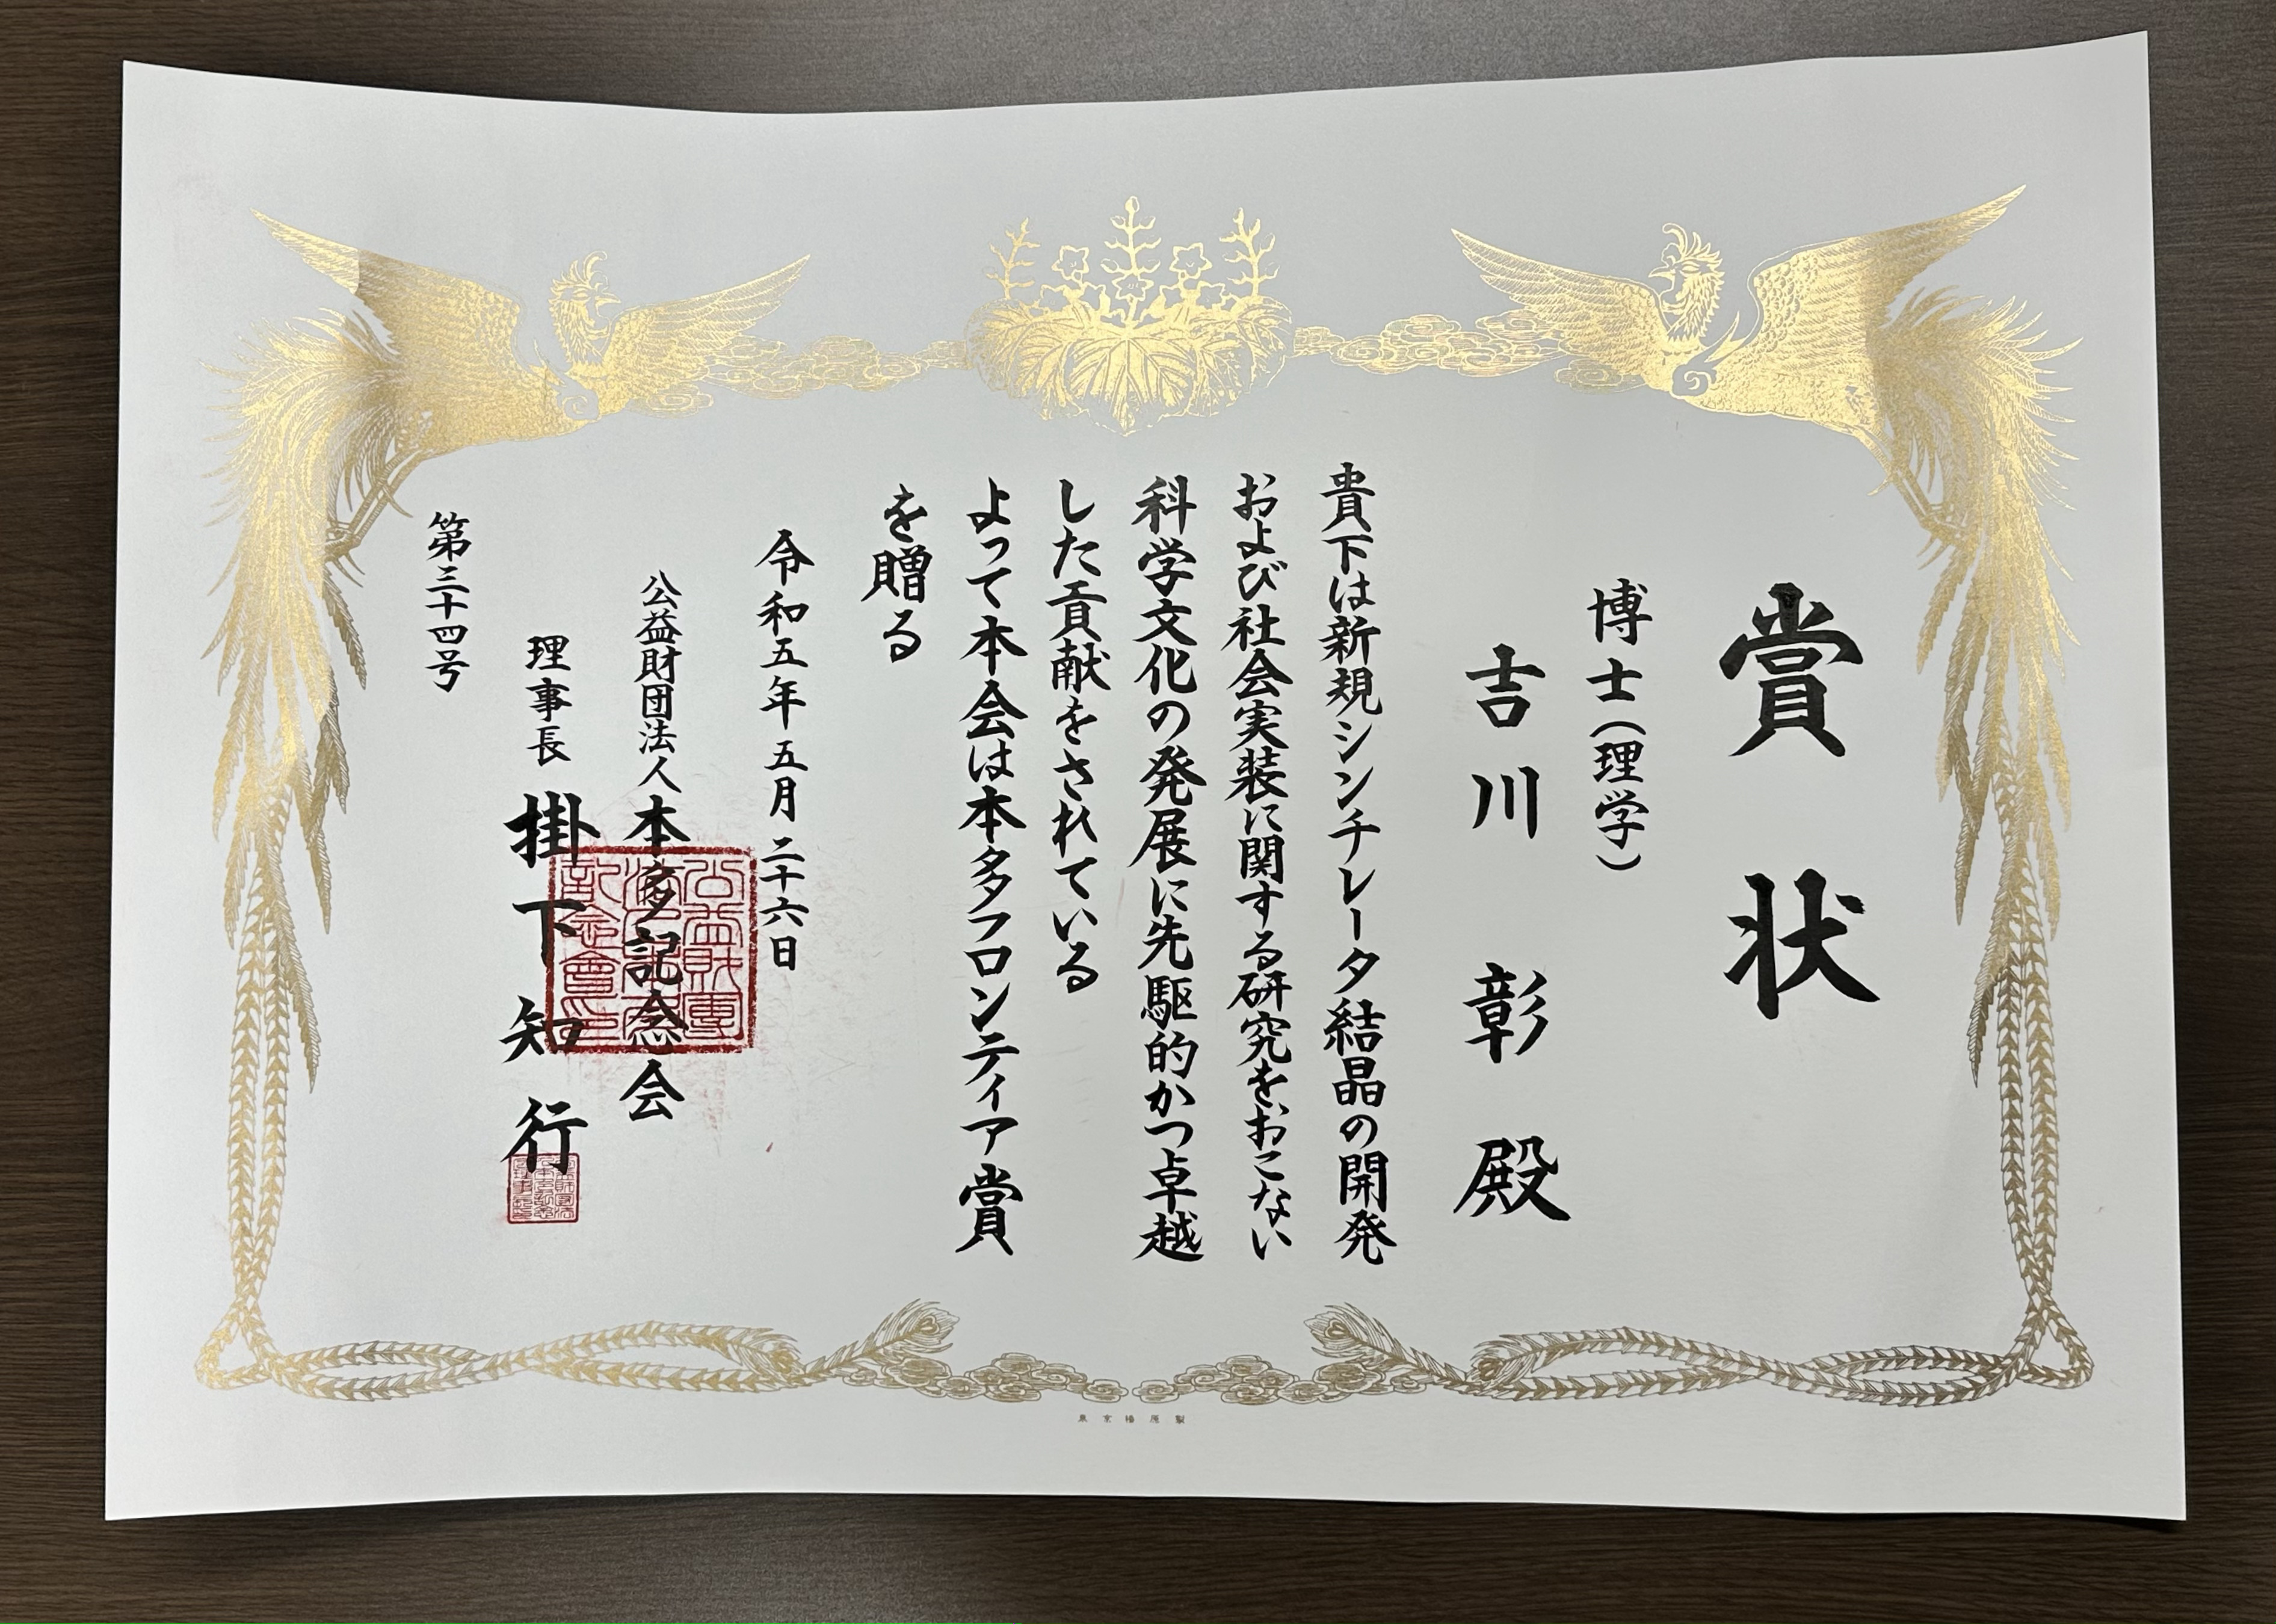 賞状
博士(理学)
吉川 彰 殿
貴下は新規シンチレータ結晶の開発
および社会実装に関する研究をおこない
科学文化の発展に先駆的かつ卓越
した貢献をされている
よって本会は本多フロンティア賞
を贈る
令和五年五月二十六日
公益財団法人本多記念会
理事長 掛下知行
第三十四号
東京榛原製